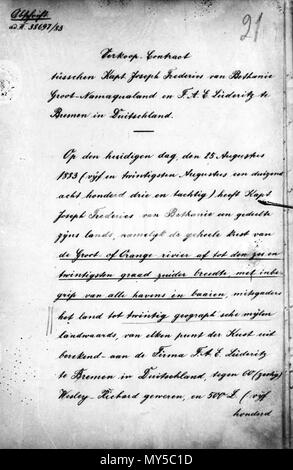 Abschrift
ad A. 38697/83
21
Verkoop-Contract
tüsschen Kapt Joseph Frederics van Bethanie
Groot-Namaqualand en F. A. E. Lüderitz te
Bremen in Duitschland.
Op den huidigen dag, den 25 Augustus
1883 (vijf en twintigsten Augustus een duizend
acht honderd drie en tachtig) heeft Kapt
Joseph Frederics van Bethanie een gedeelte
zyns lands, namelyk de geheele kust van
de Groot of Orange rivier af tot den zes en
twintigsten graad zuider breedte, met inbe
grip van alle havens en baaien, mitsgaders
het land tot twintig geograph'sche mijlen
landwaards, van elken punt der Kust uit
berekend aan de Firma F. A. E. Lüderitz
te Bremen in Duitschland, tegen 60 (zestig)
Wesley-Richard geweren, en 500 £. (vijf
honderd
alamy
Image ID: MY5C1D
www.alamy.com